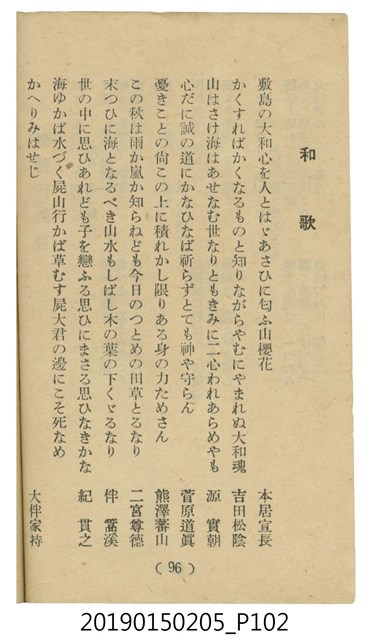 和歌
敷島の大和心を人とはゞあさひに匂ふ山櫻花　本居宣長
かくすればかくなるものと知りながらやむにやまれぬ大和魂　吉田松陰
山はさけ海はあせなむ世なりともきみに二心われあらめやも　源實朝
心だに誠の道にかなひなば祈らずとても神や守らん　菅原道眞
憂きことの尙この上に積れかし限りある身の力ためさん　熊澤蕃山
この秋は雨か嵐か知らねども今日のつとめの田草とるなり　二宮尊德
末つひに海となるべき山水もしばし木の葉の下くゞるなり　伴蒿溪
世の中に思ひあれども子を戀ふる思ひにまさる思ひなきかな　紀貫之
海ゆかば水づく屍山行かば草むす屍大君の邊にこそ死なめ
かへりみはせじ　大伴家持
(96)
20190150205_P102